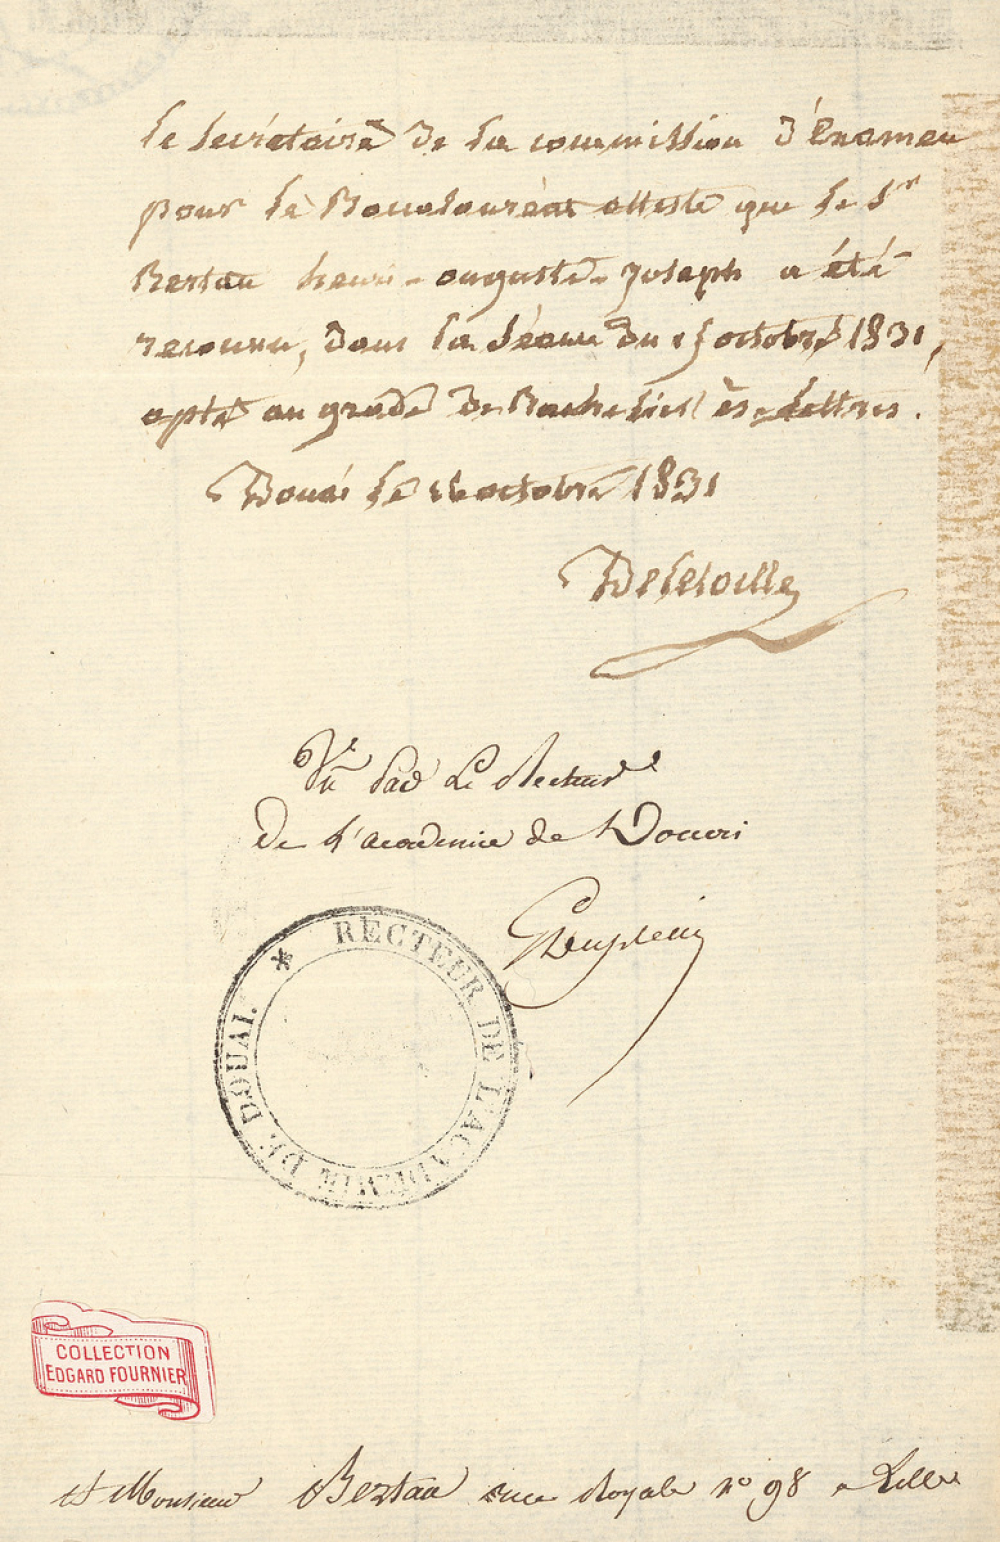 le secrétaire de la commission d'Examen
pour le Baccalauréat atteste que le Sr
Beztau henri-auguste-joseph a été
reconnu, dans la séance du 15 octobre 1831,
apte au grade de Bachelier ès-lettres.
Douai le 16 octobre 1831
Vu par Le Recteur
De L'académie de Douai
RECTEUR DE L'ACADEMIE DE DOUAI.
COLLECTION
EDGARD FOURNIER
A Monsieur Beztau rue Royale n° 98 a Lille